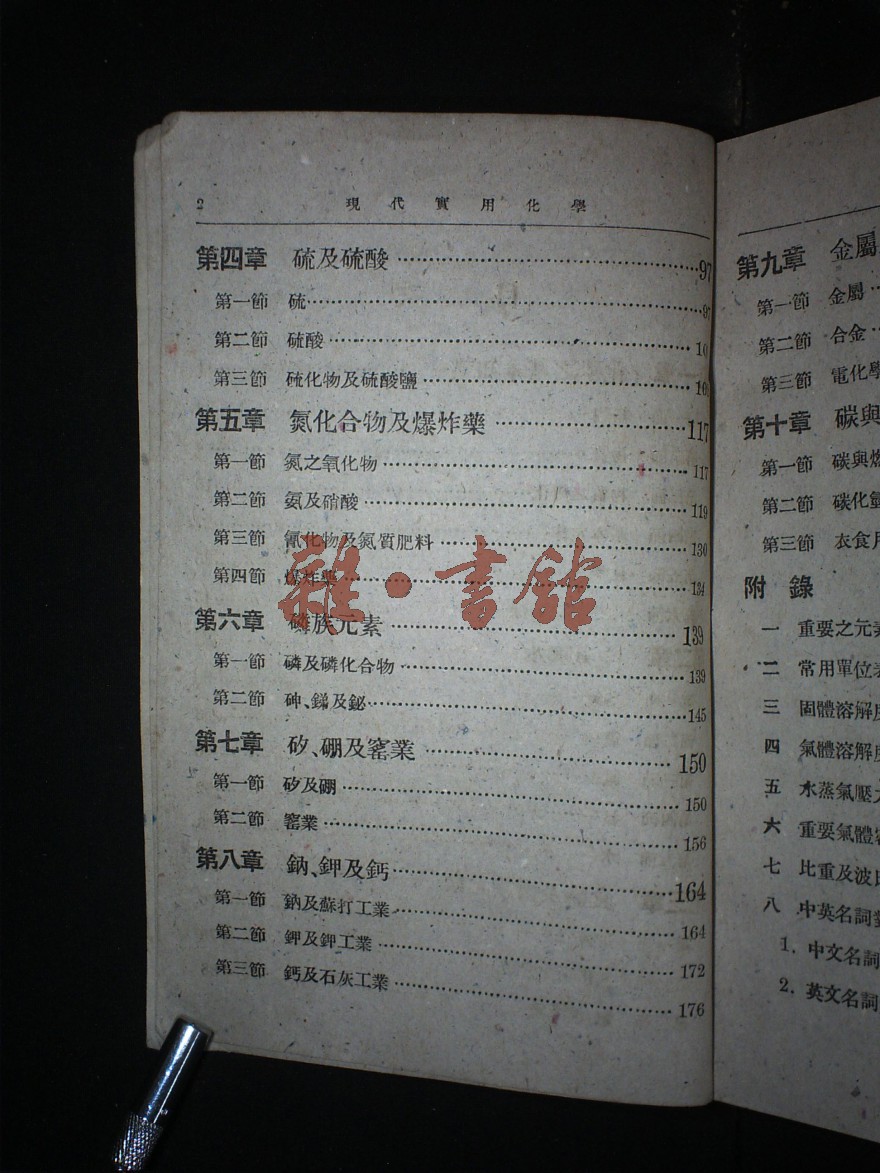 2 現代實用化學
第四章 硫及硫酸 97
第一節 硫 97
第二節 硫酸
第三節 硫化物及硫酸鹽
第五章 氮化合物及爆炸藥 117
第一節 氮之氧化物 117
第二節 氨及硝酸 119
第三節 氰化物及氮質肥料 130
第四節 爆炸藥 134
雜·書館
第六章 磷族元素 139
第一節 磷及磷化合物 139
第二節 砷、銻及鉍 145
第七章 矽、硼及窰業 150
第一節 矽及硼 150
第二節 窰業 156
第八章 鈉、鉀及鈣 164
第一節 鈉及蘇打工業 164
第二節 鉀及鉀工業 172
第三節 鈣及石灰工業 176
第九章 金屬
第一節 金屬
第二節 合金
第三節 電化學
第十章 碳與
第一節 碳與燃
第二節 碳化氫
第三節 衣食
附錄
一 重要之元素
二 常用單位表
三 固體溶解度
四 氣體溶解度
五 水蒸氣壓
六 重要氣體
七 比重及波
八 中英名詞
1. 中文名詞
2. 英文名詞